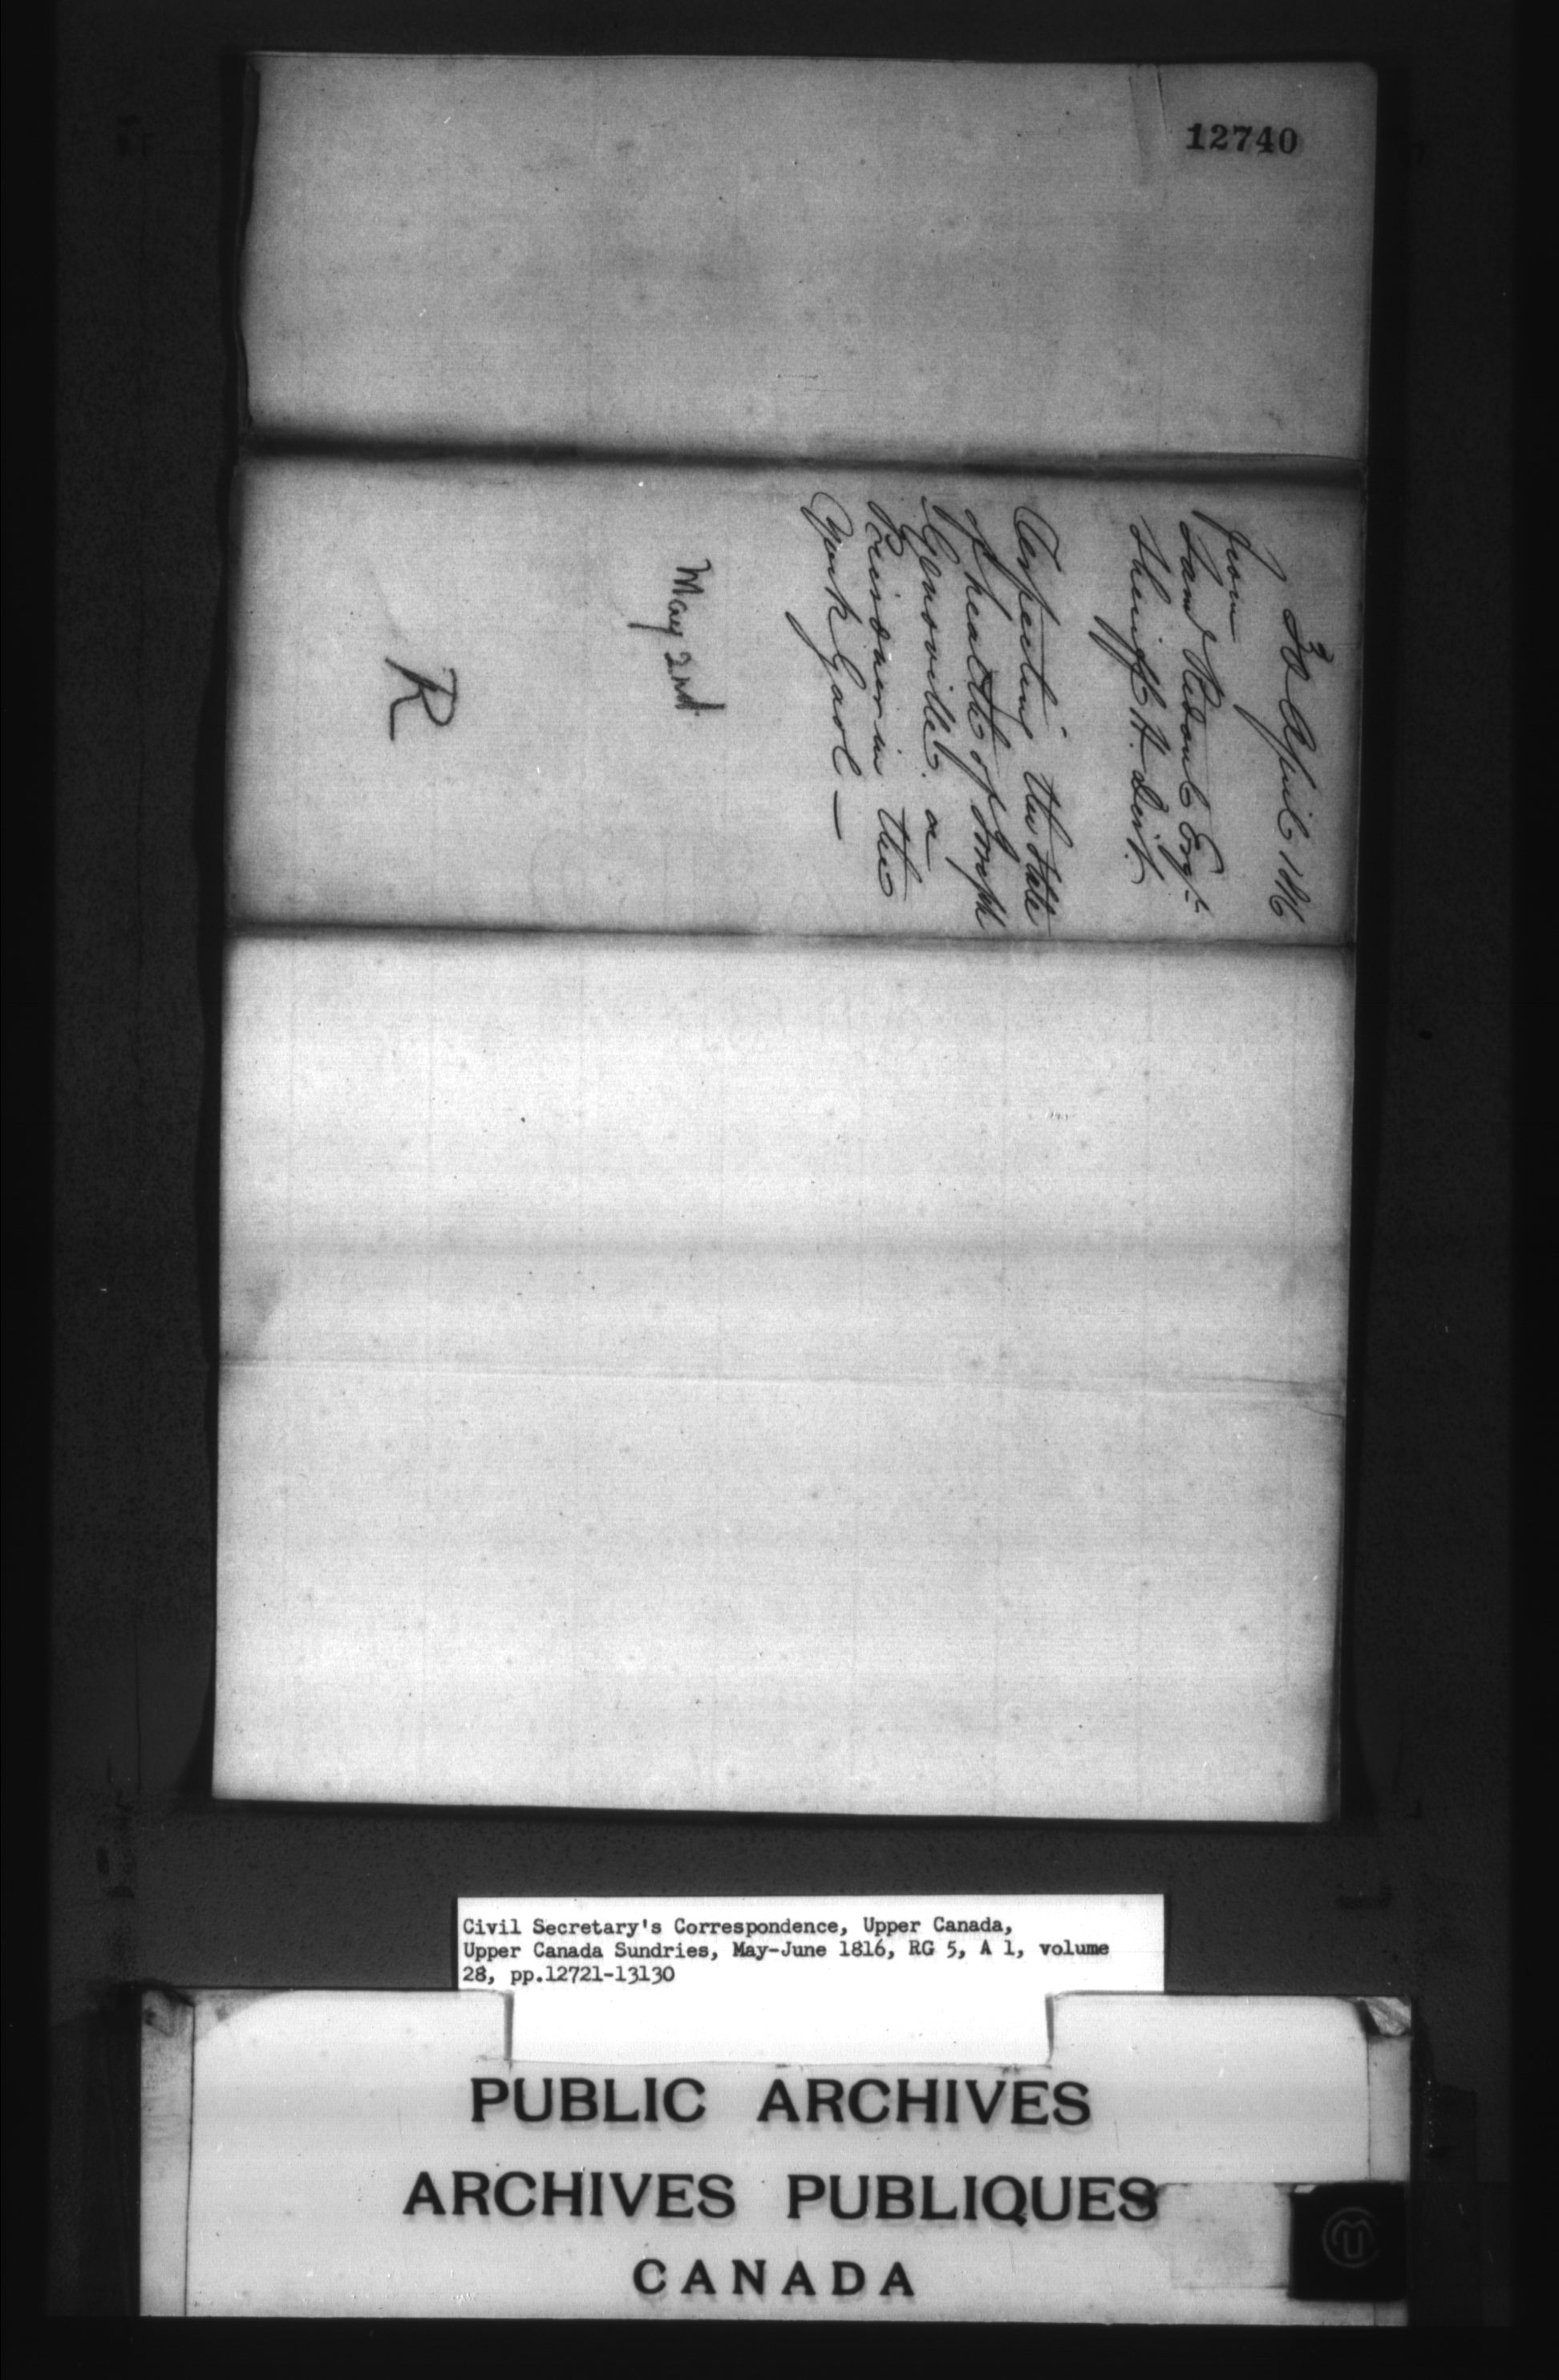 12740
30 April 1816
From
Saml Ridout Esqr
Sheriff H. Dist.
Respecting the State
of health of Joseph
Genoville a
Prisoner in the
York Gaol —
May 2nd
R
Civil Secretary's Correspondence, Upper Canada,
Upper Canada Sundries, May-June 1816, RG 5, A 1, volume
28, pp.12721-13130
PUBLIC ARCHIVES
ARCHIVES PUBLIQUES
CANADA